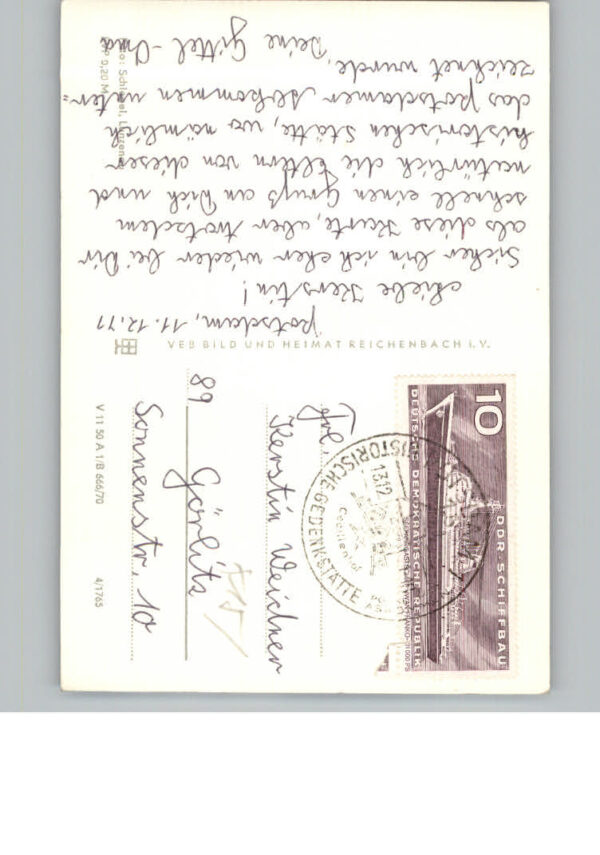 Potsdam, 11.12.71
Liebe Kerstin!
Sicher bin ich eher wieder bei Dir
als diese Karte, aber trotzdem
schnell einen Gruß an Dich und
natürlich die Eltern von dieser
historischen Stätte, wo nämlich
das Potsdamer Abkommen unter=
zeichnet wurde,
Deine Gittel-Oma
0,20 M
VEB BILD UND HEIMAT REICHENBACH i.V.
10
DDR-SCHIFFBAU
DEUTSCHE DEMOKRATISCHE REPUBLIK
HISTORISCHE GEDENKSTÄTTE
Cecilienhof
13.12
Frl.
Kerstin Weichner
89 Görlitz
Sonnenstr. 10
V 11 50 A 1/B 666/70
4/1765